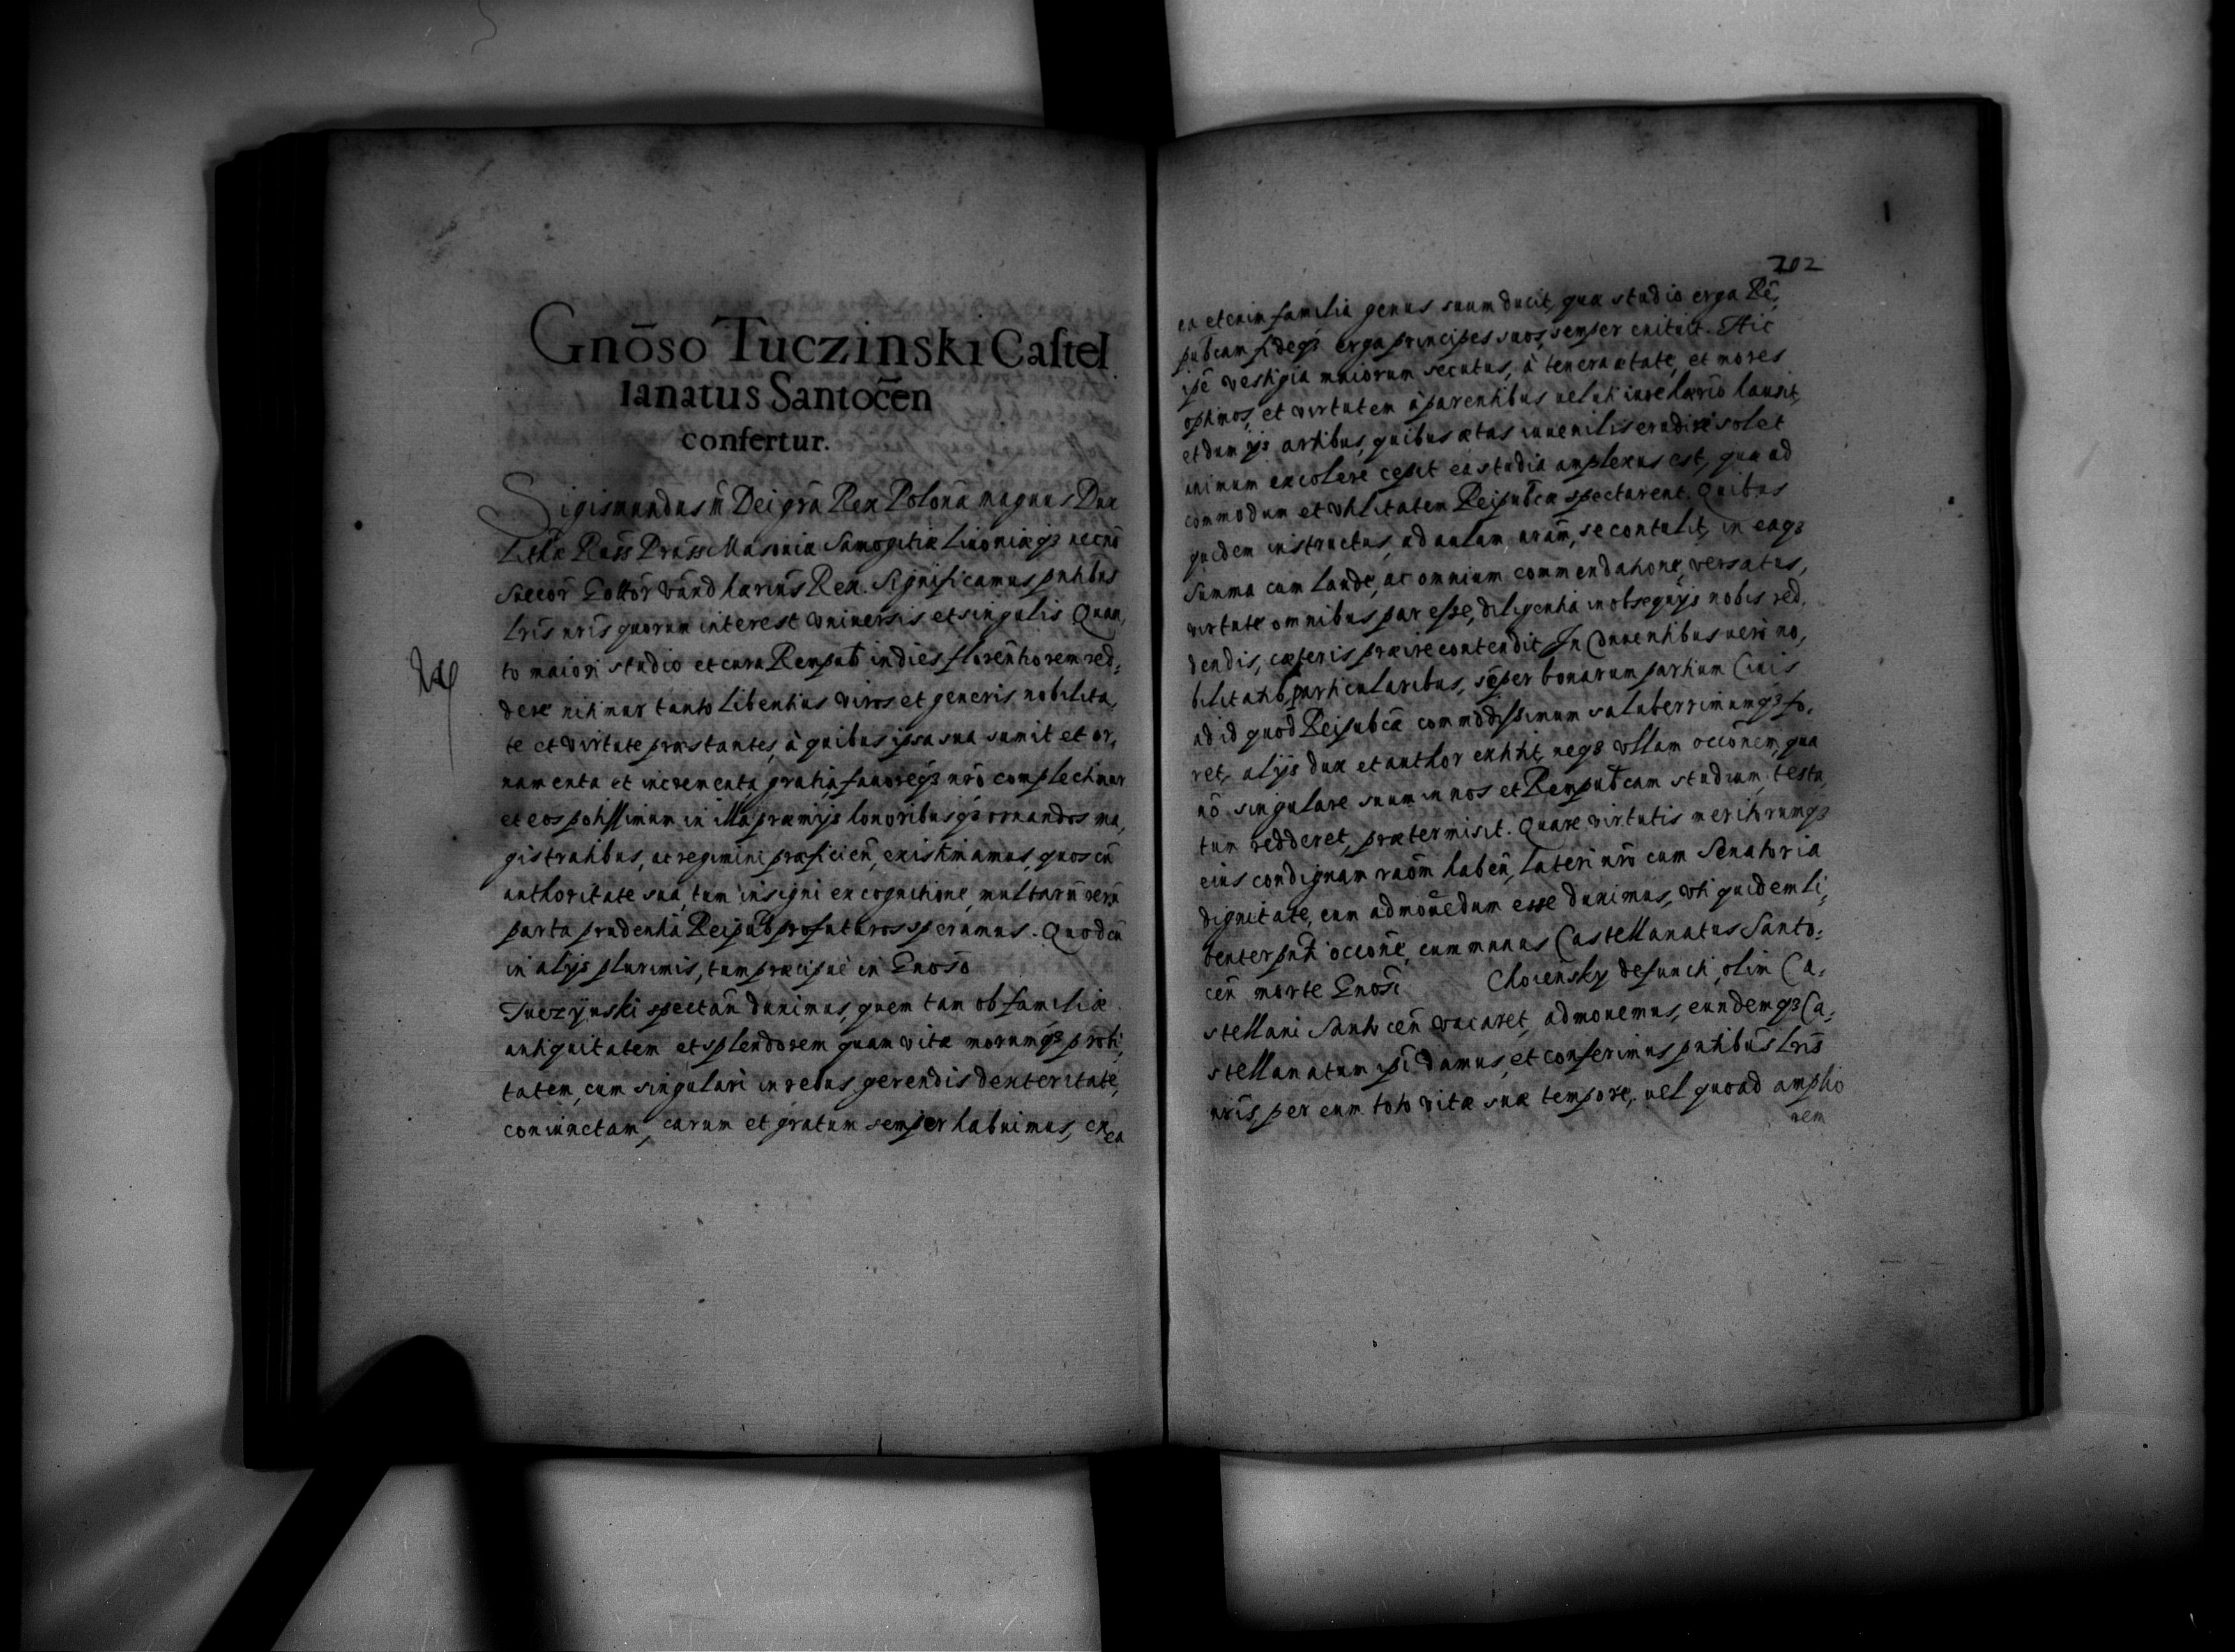 Gnōso Tuczinski Castel
lanatus Santoc̄en
confertur.
Sigismundus iii Dei gra Rex Poloña magnus Dux
Lithæ Russ Pruss Masoniæ Samogitiæ Liuoniæqȝ necnō
Suecor Gottor Vand hæriūs Rex. Significamus pntibus
Lris nris quorum interest vniuersis et singulis Quan,
to maiori studio et cura Rempub indies florentiorem red,
dere nitimur tanto libentius viros et generis nobilita,
te et virtute præstantes, à quibus ipsa sua sumit et or,
namenta et incrementa, gratia, fauoreqȝ nro complectimur
et eos potissimum in illa præmijs honoribusqȝ ornandos ma,
gistratibus, ac regimini præficien, existimamus, quos cū
authoritate sua, tum insigni ex cognitione, multarū rerū
parta prudentia Reipub profuturos speramus. Quod cū
in alijs plurimis, tum præcipuè in Gnoso
Tuczynski spectan duximus, quem tam ob familiæ
antiquitatem et splendorem quam vitæ morumqȝ probi,
tatem, cum singulari in rebus gerendis dexteritate,
coniunctam, carum et gratum semper habuimus, ex
ea
202
ea etenim familia genus suum ducit, quæ studio erga Rē,
pubcam fideqȝ erga principes suos, semper enituit. Hic
ipē vestigia maiorum secutus, à tenera ætate, et mores
optimos, et virtutem à parentibus uelut iure hærio hausit,
et dum ijs artibus, quibus ætas iuuenilis erudiri solet
animum excolere cepit ea studia amplexus est, quæ ad
commodum et vtilitatem Reipubcæ spectarent. Quibus
quidem instructus, ad aulam nram, se contulit, in eaqȝ
Summa cum laude, ac omnium commendatione, versatus,
virtute omnibus par esse, diligentia in obsequijs nobis red,
dendis, cæteris præire contendit. In Conuentibus uerò no,
bilitatib particularibus, sēper bonarum partium Ciuis
ad id quod Reipubcæ commodissimum saluberrimumqȝ fo,
ret, alijs dux et author extitit, neqȝ vllam occōnem, qua
nō singulare suum in nos et Rempubcam studium, testa,
tum redderet, prætermisit. Quare virtutis meritorumqȝ
eius condignam raōm haben, lateri nro cum Senatoria
dignitate, eum admouēdum esse duximus, vti quidem li,
benter pnti occōne, cum munus Castellanatus Santo,
cen morte Gnosi Choiensky defuncti, olim Ca,
stellani Santocen vacaret, admouemus, eundemqȝ Ca,
stellanatum ipi damus, et conferimus pntibus Lris
nris, per eum toto vitæ suæ tempore, uel quoad amplio
rem